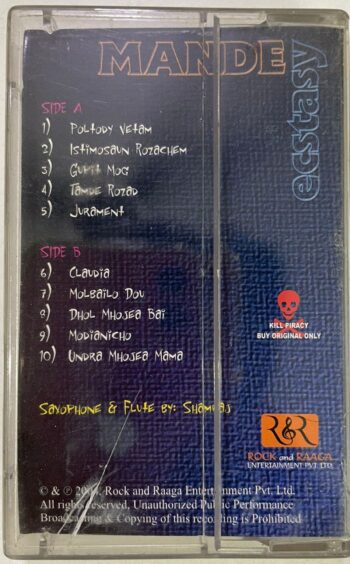 MANDE
ecstasy
SIDE A
1) Poltody Vetam
2) Istimosaun Rozachem
3) Gupit Mog
4) Tambde Rozad
5) Jurament
SIDE B
6) Claudia
7) Molbailo Dou
8) Dhol Mhojea Bai
9) Modianicho
10) Undra Mhojea Mama
KILL PIRACY
BUY ORIGINAL ONLY
Saxophone & Flute by:
R&R
ROCK and RAAGA
ENTERTAINMENT PVT. LTD.
© & ℗ Rock and Raaga Entertainment Pvt. Ltd.
All rights reserved, Unauthorized Public Performance
Broadcasting & Copying of this recording is Prohibited